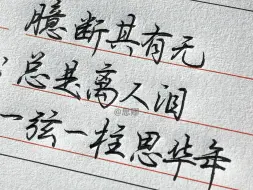 臆断其有无
总是离人泪
一弦一柱思华年